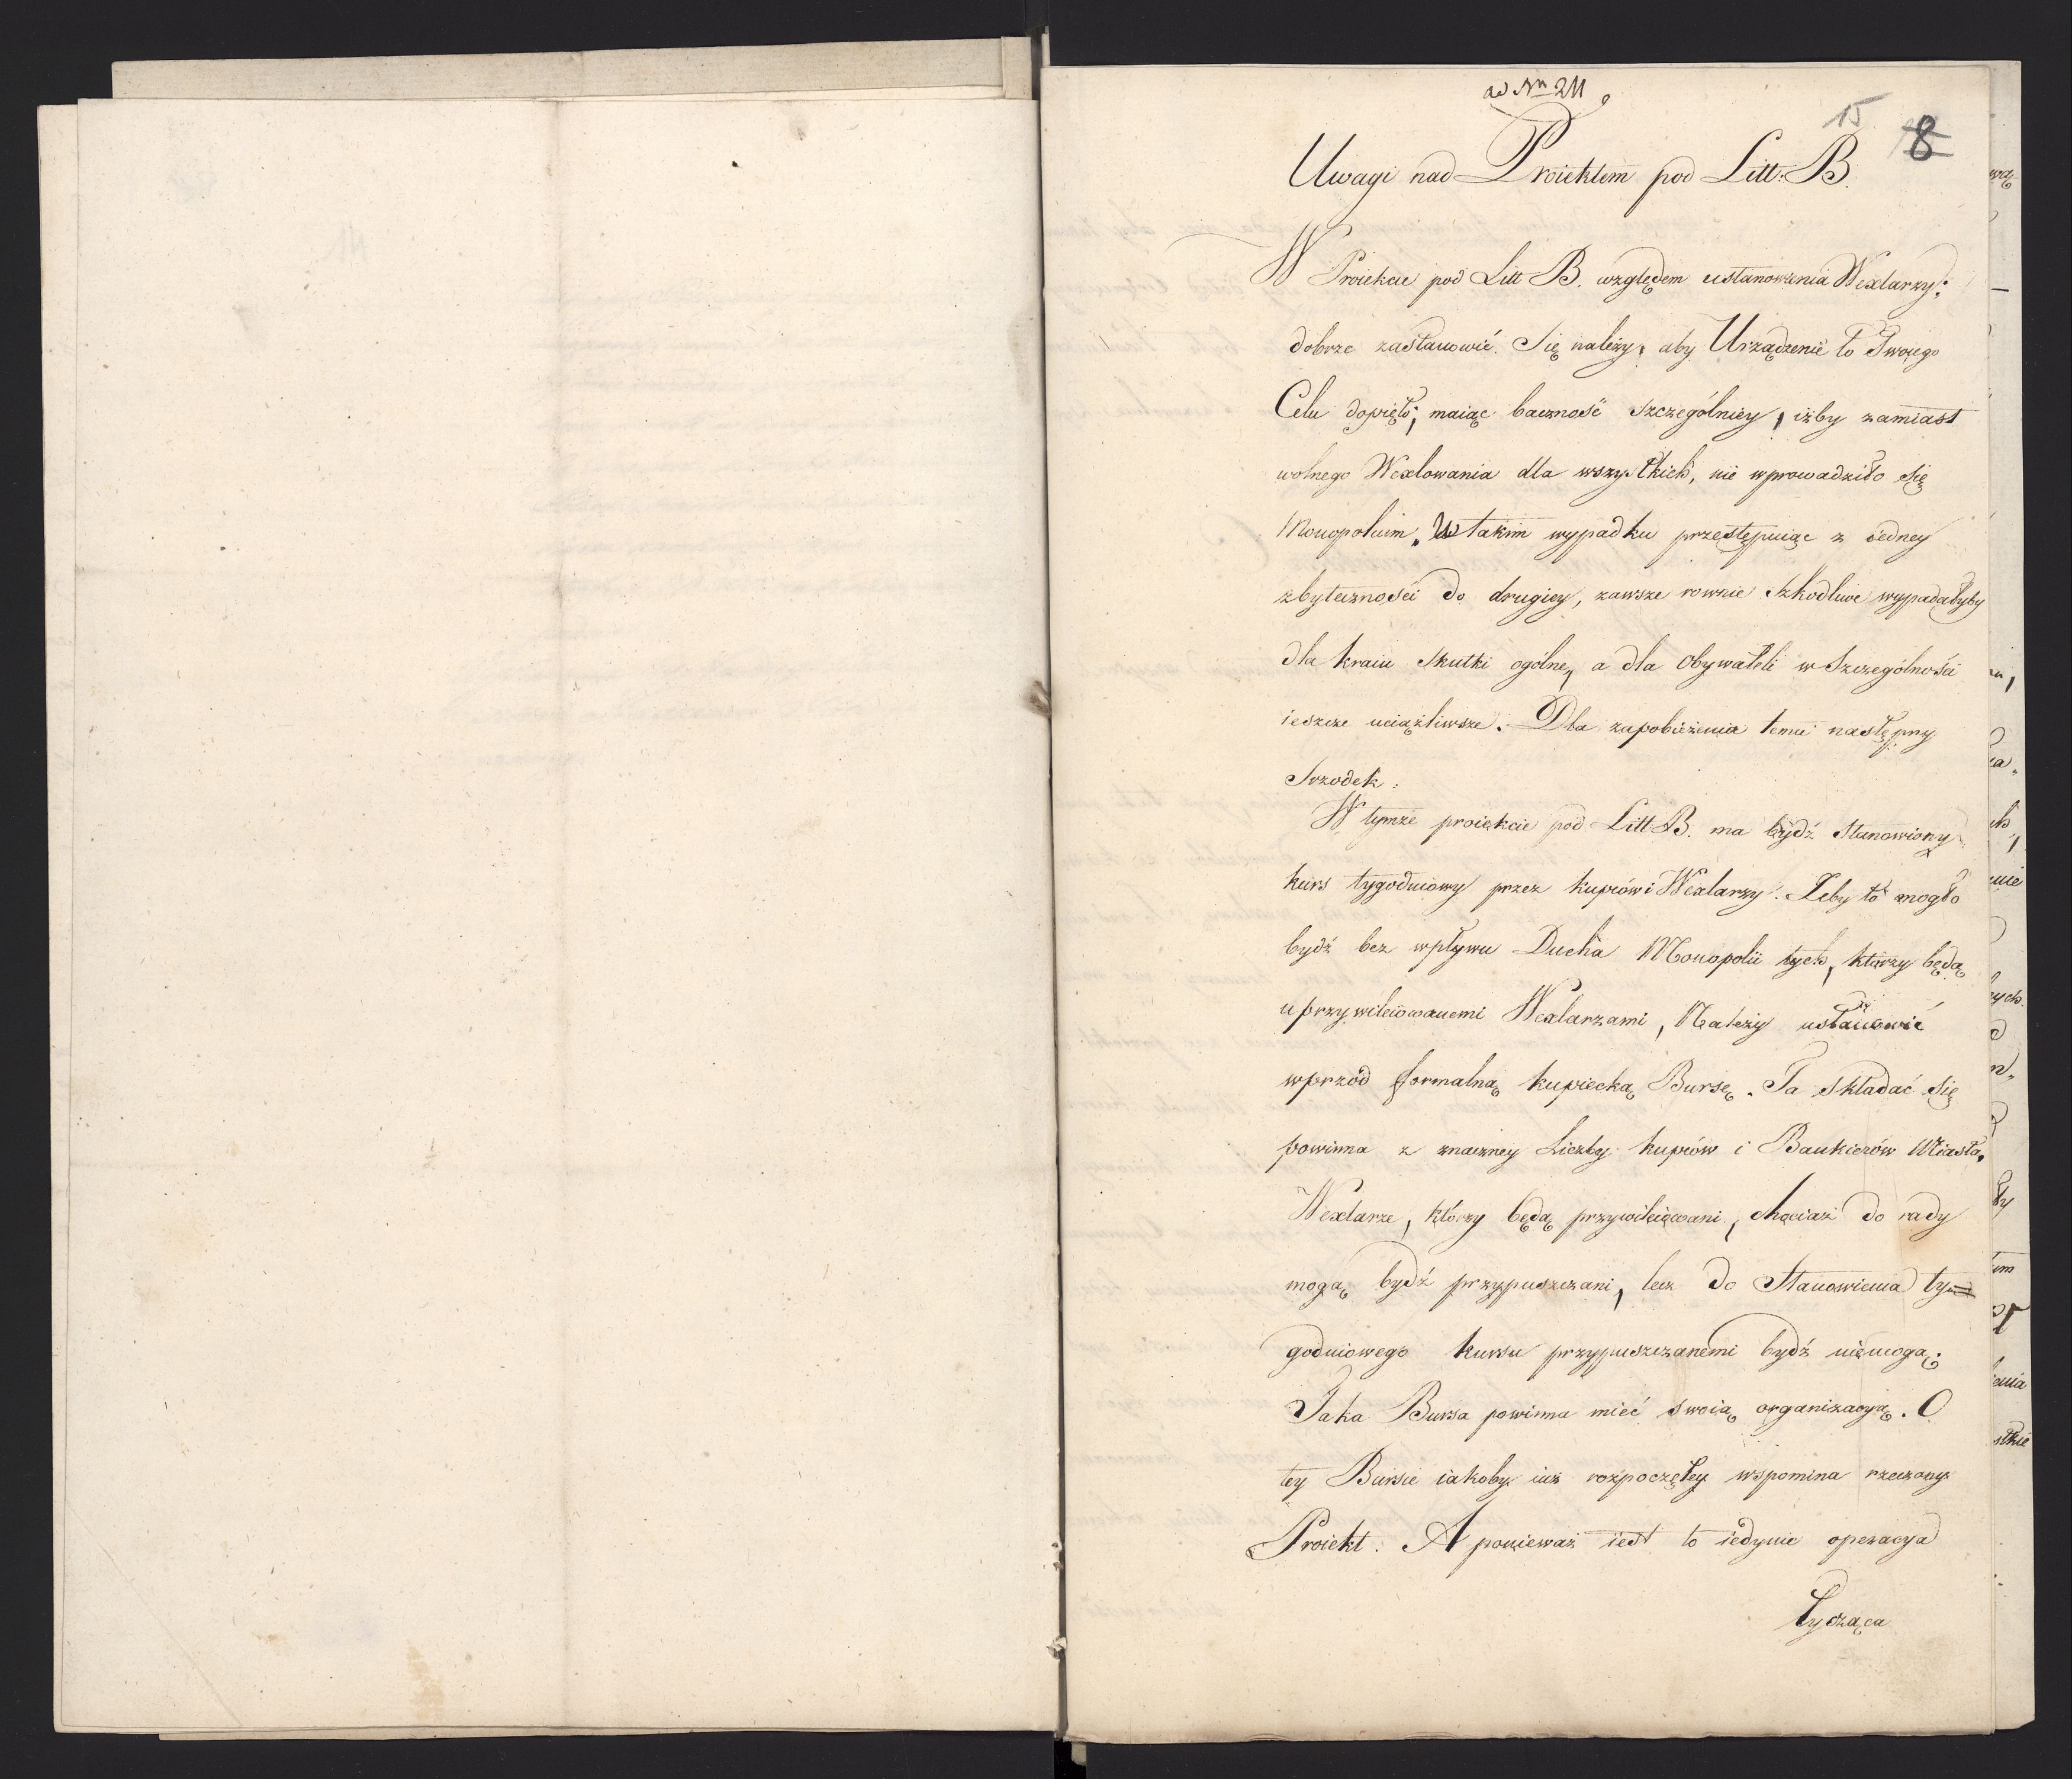 ad Nr 211
15
8
Uwagi nad Proiektem pod Litt: B.
W Proiekcie pod Litt B. względem ustanowienia Wexlarzy:
dobrze zastanowić Się należy, aby Urządzenie to Swoiego
Celu dopięło; maiąc baczność szczególniey, iżby zamiast
wolnego Wexlowania dla wszystkich, nie wprowadziło się
Monopolium. W takim wypadku przestępuiąc z iedney
zbyteczności do drugiey, zawsze rownie szkodliwe wypadałyby
dla kraiu skutki ogólne, a dla Obywateli w Szczególności
ieszcze uciążliwsze. Dla zapobieżenia temu następny
Srzodek:
W tymże proiekcie pod Litt B. ma bydź stanowiony
kurs tygodniowy przez kupców i Wexlarzy. Żeby to mogło
bydź bez wpływu Ducha Monopolii tych, którzy będą
uprzywileiowanemi Wexlarzami, Należy ustanowić
wprzód formalną kupiecką Bursę. Ta składać się
powinna z znaczney Liczby kupców i Bankierów Miasta.
Wexlarze, którzy będą przywileiowani, chociaż do rady
mogą bydź przypuszczani, lecz do Stanowienia ty=
godniowego kursu przypuszczanemi bydź niemogą.
Taka Bursa powinna mieć swoią organizacyą. O
tey Bursie iakoby iuż rozpoczętey wspomina rzeczony
Proiekt. A ponieważ iest to iedynie operacya
tycząca